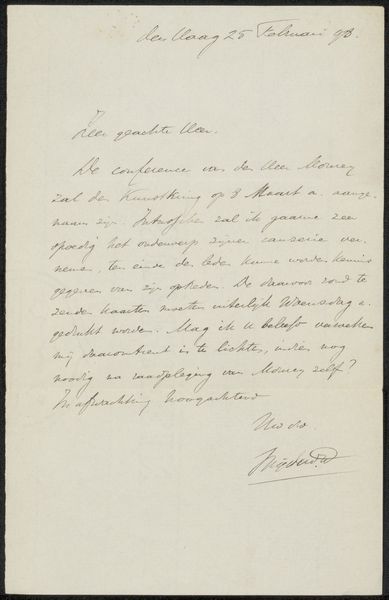 den Haag 25 Februari 98.
Zeer geachte Heer.
De conference van den Heer Mourey
zal den Kunstkring op 8 Maart a. aange-
naam zijn. Intusschen zal ik gaarne zeer
spoedig het onderwerp zijner causerie ver-
nemen, ten einde de leden kunne worden kennis
gegeven van zijn optreden. De daarvoor rond te
zenden kaarten moeten uiterlijk Woensdag a.
gedrukt worden. Mag ik U beleefd verzoeken
mij daaromtrent in te lichten, indien nog
noodig na raadpleging van Mourey zelf?
In afwachting hoogachtend
Uw dw.